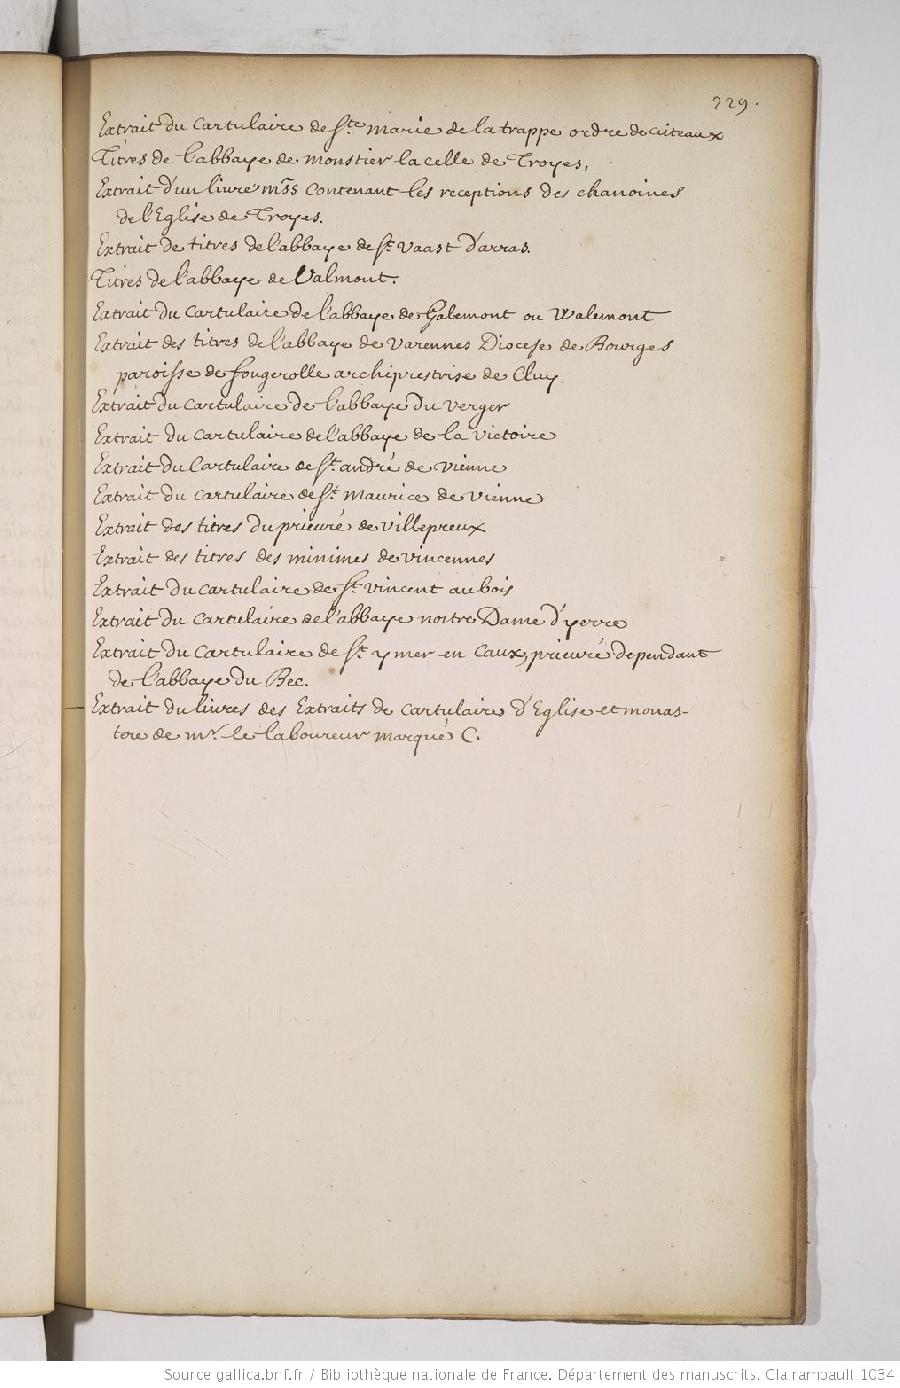 329.
Extrait du cartulaire de Ste marie de la trappe ordre de citeaux
Titres de l'abbaye de moustier la celle de Troyes,
Extrait d'un livre mss contenant les receptions des chanoines
de l'Eglise de Troyes.
Extrait de titres de l'abbaye de St vaast d'arras.
Titres de l'abbaye de Valmont.
Extrait du cartulaire de l'abbaye de Galemont ou Walemont
Extrait des titres de l'abbaye de varennes Diocese de Bourges
paroisse de fougerolle archiprestrise de Cluy
Extrait du cartulaire de l'abbaye du verger
Extrait du cartulaire de l'abbaye de la victoire
Extrait du Cartulaire de St andré de vienne
Extrait du cartulaire de St maurice de vienne
Extrait des titres du prieuré de villepreux
Extrait des titres des minimes de vincennes
Extrait du cartulaire de St vincent au bois
Extrait du cartulaire de l'abbaye nostre Dame d'yerre
Extrait du cartulaire de St ymer en Caux, prieuré dependant
de l'abbaye du Bec.
Extrait du livres des Extraits de cartulaire d'Eglise et monas-
tere de mr. le laboureur marqué C.
Source gallica.bnf.fr / Bibliothèque nationale de France. Département des manuscrits. Clairambault 1034